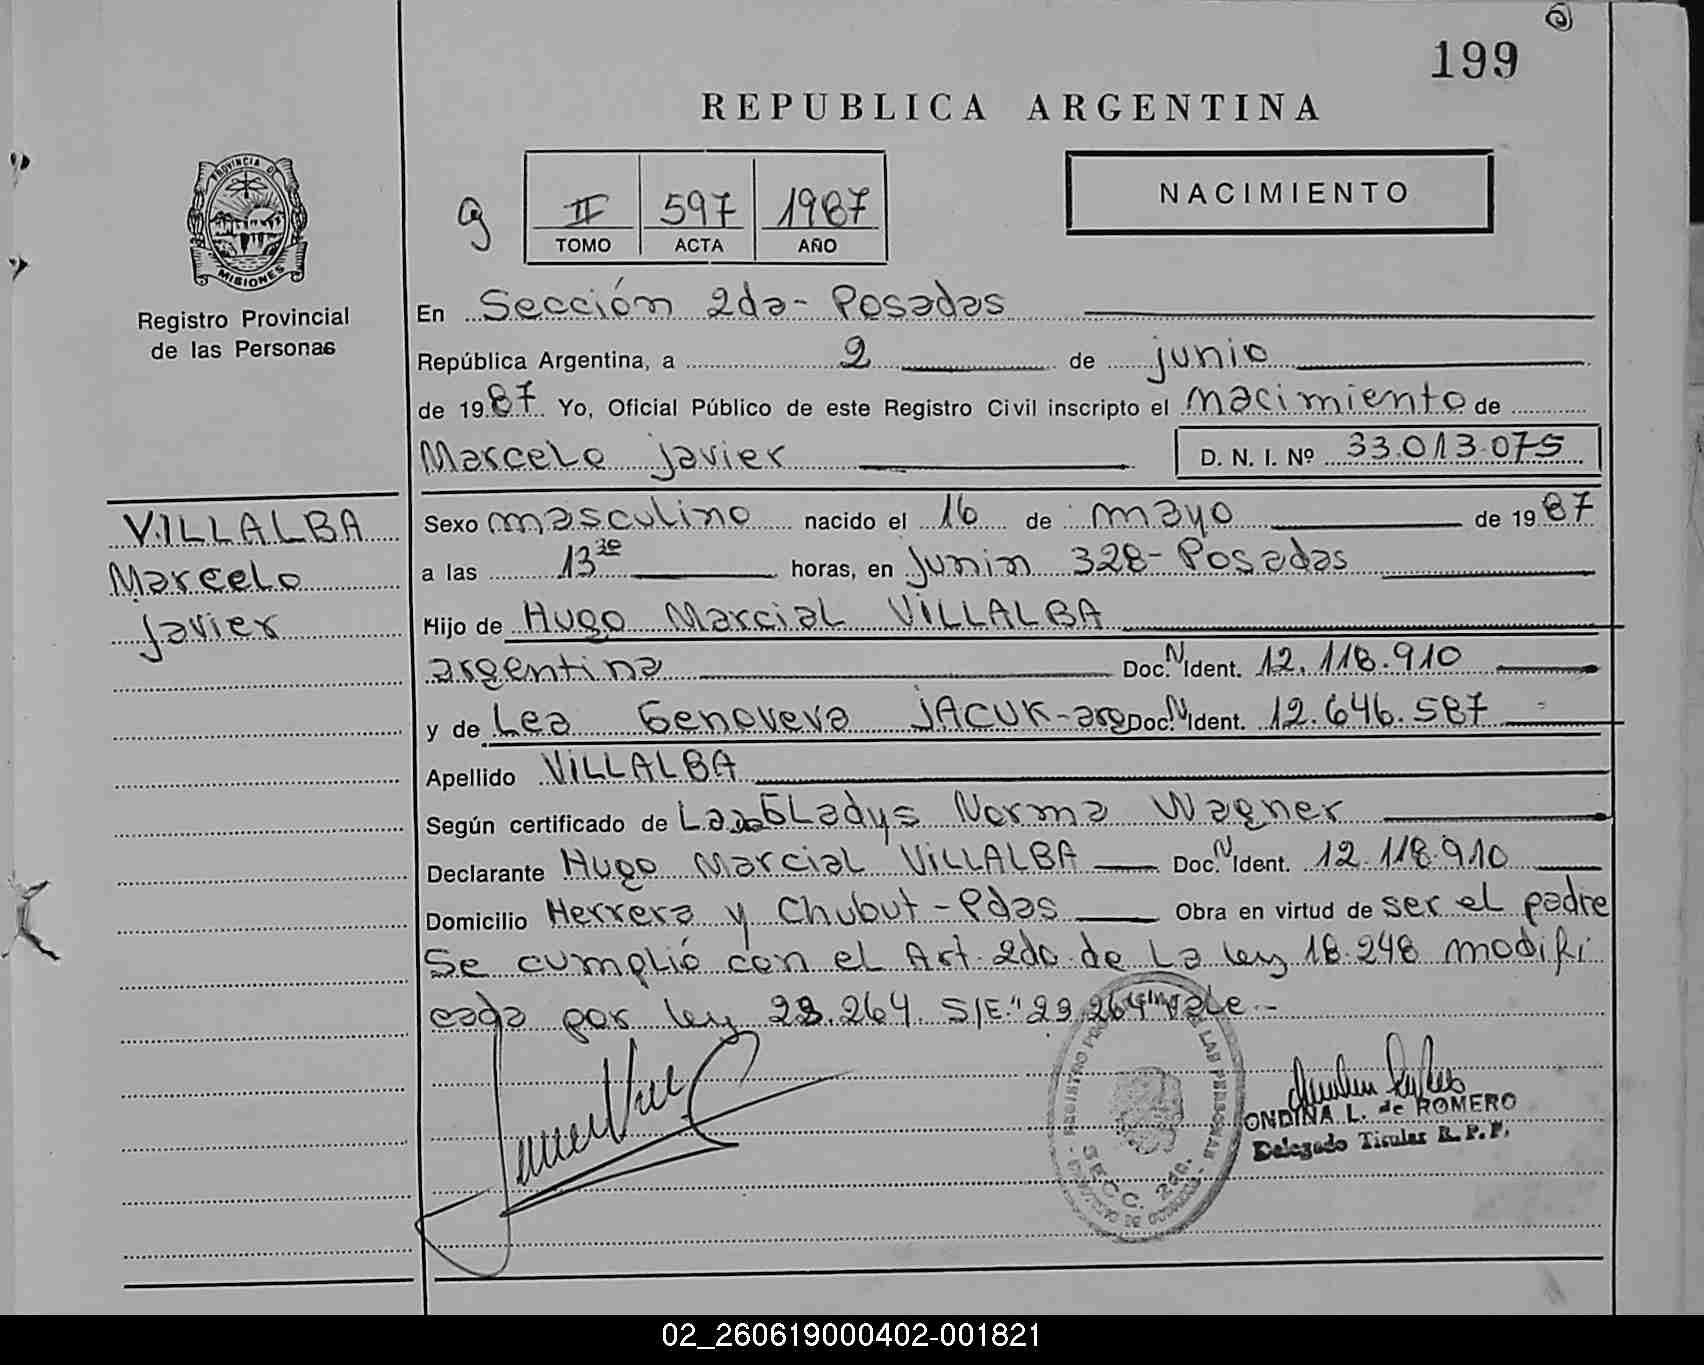 199
REPUBLICA ARGENTINA
PROVINCIA DE
MISIONES
Registro Provincial
de las Personas
II 597 1987
TOMO ACTA AÑO
NACIMIENTO
En Sección 2da - Posadas
República Argentina, a 2 de junio
de 1987 Yo, Oficial Público de este Registro Civil inscripto el nacimiento de
Marcelo Javier D. N. I. Nº 33.013.075
VILLALBA
Marcelo
Javier
Sexo masculino nacido el 16 de mayo de 1987
a las 13 30 horas, en Junín 328 - Posadas
Hijo de Hugo Marcial VILLALBA
argentina Doc. N Ident. 12.118.910
y de Lea Genoveva JACUK - arg Doc. N Ident. 12.646.587
Apellido VILLALBA
Según certificado de Gladys Norma Wagner
Declarante Hugo Marcial VILLALBA Doc. N Ident. 12.118.910
Domicilio Herrera y Chubut - Pdas Obra en virtud de ser el padre
Se cumplió con el Art. 2do. de la ley 18.248 modifi
cada por ley 23.264. S/E: "23.264" Vale.-
LAS PERSONAS
SECC. 2da.
ONDINA L. de ROMERO
Delegado Titular R. P. P.
02_260619000402-001821